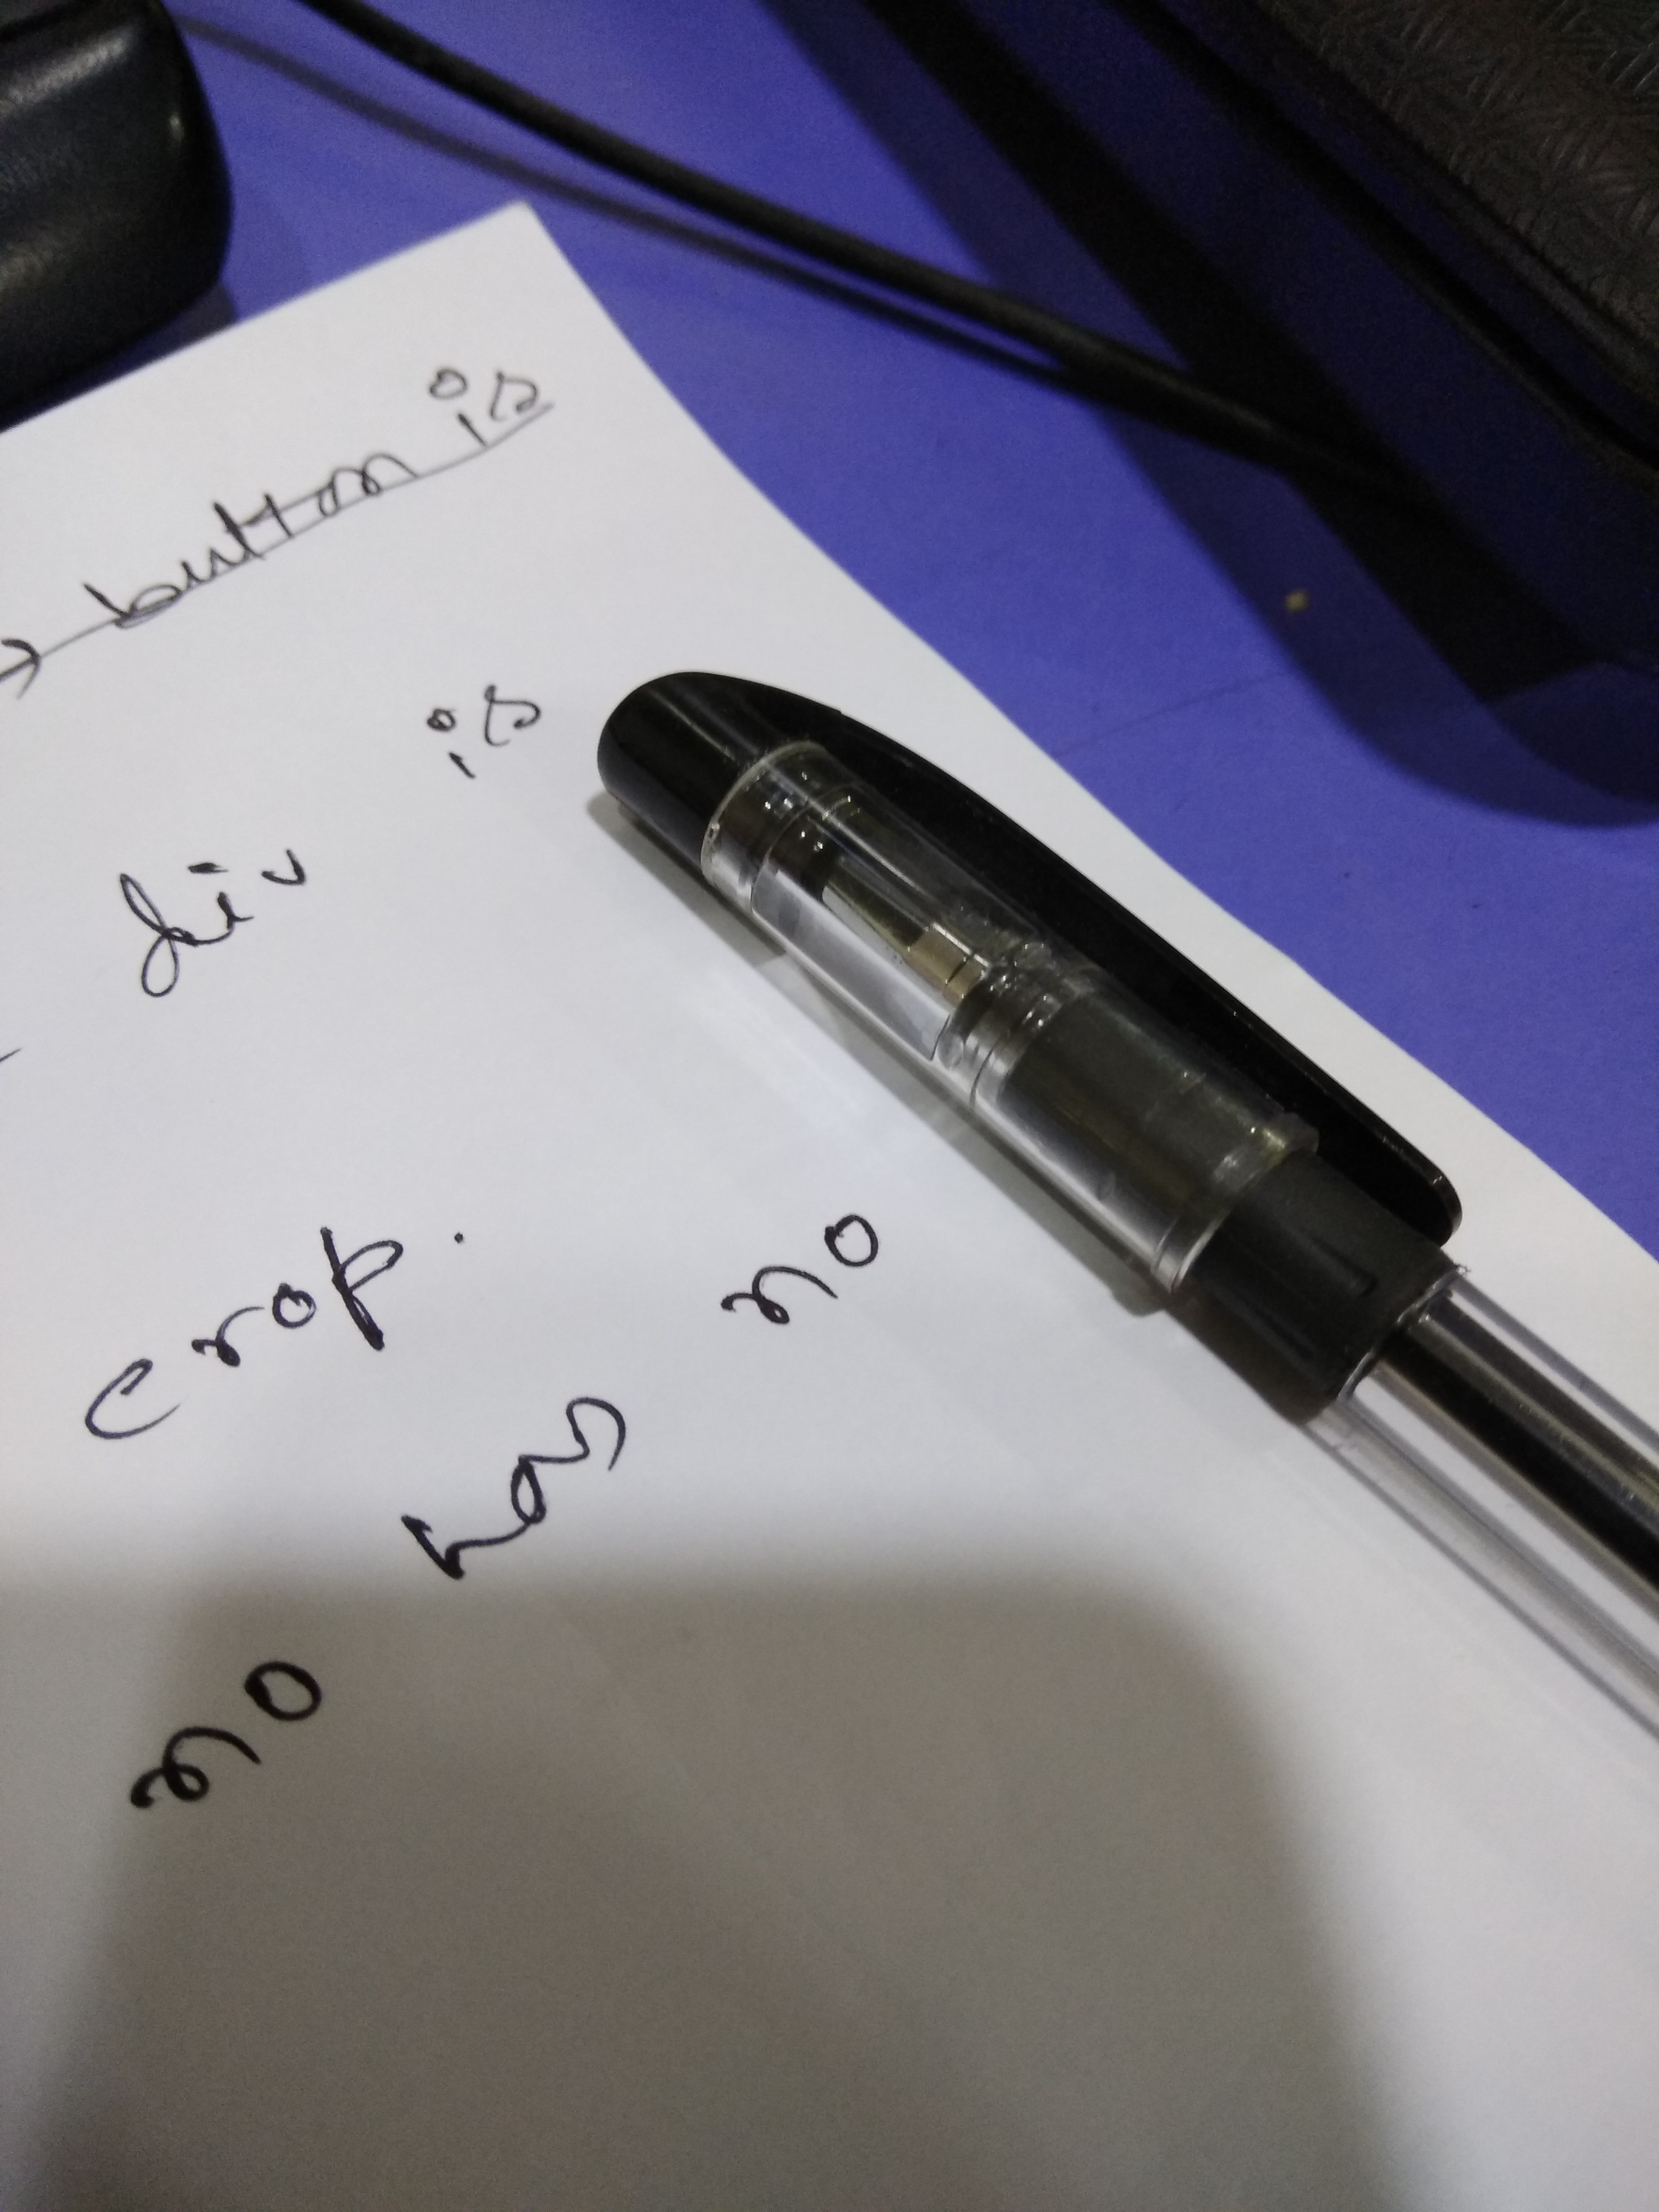 → button is
div is
crop.
no has no